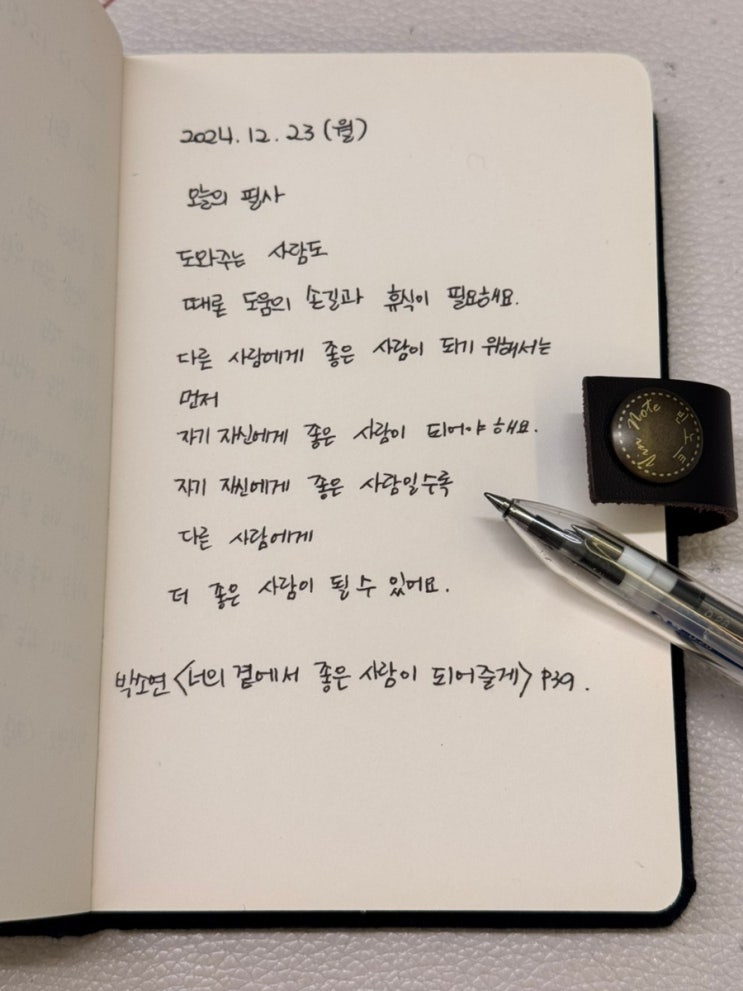 2024. 12. 23 (월)
오늘의 필사
도와주는 사람도
때론 도움의 손길과 휴식이 필요해요.
다른 사람에게 좋은 사람이 되기 위해서는
먼저
자기 자신에게 좋은 사람이 되어야 해요.
자기 자신에게 좋은 사람일수록
다른 사람에게
더 좋은 사람이 될 수 있어요.
박소연 <너의 곁에서 좋은 사람이 되어줄게> P39.
Vin Note
빈노트